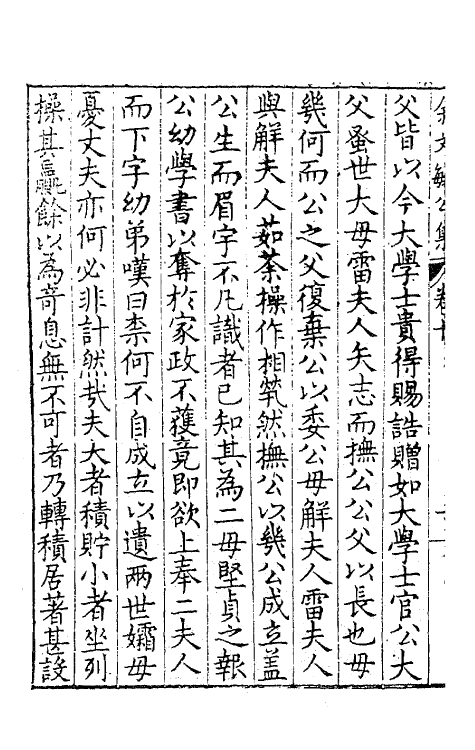 父皆以今大學士貴得賜誥贈如大學士官公大
父蚤世大母雷夫人矢志而撫公公父以長也毋
幾何而公之父復棄公以委公母解夫人雷夫人
與解夫人茹荼操作相煢然撫公以幾公成立蓋
公生而眉宇不凡識者已知其為二母堅貞之報
公幼學書以奪於家政不獲竟即欲上奉二夫人
而下字幼弟嘆曰柰何不自成立以遺兩世孀母
憂丈夫亦何必非計然㢤夫大者積貯小者坐列
操其贏餘以為竒息無不可者乃轉積居著甚設